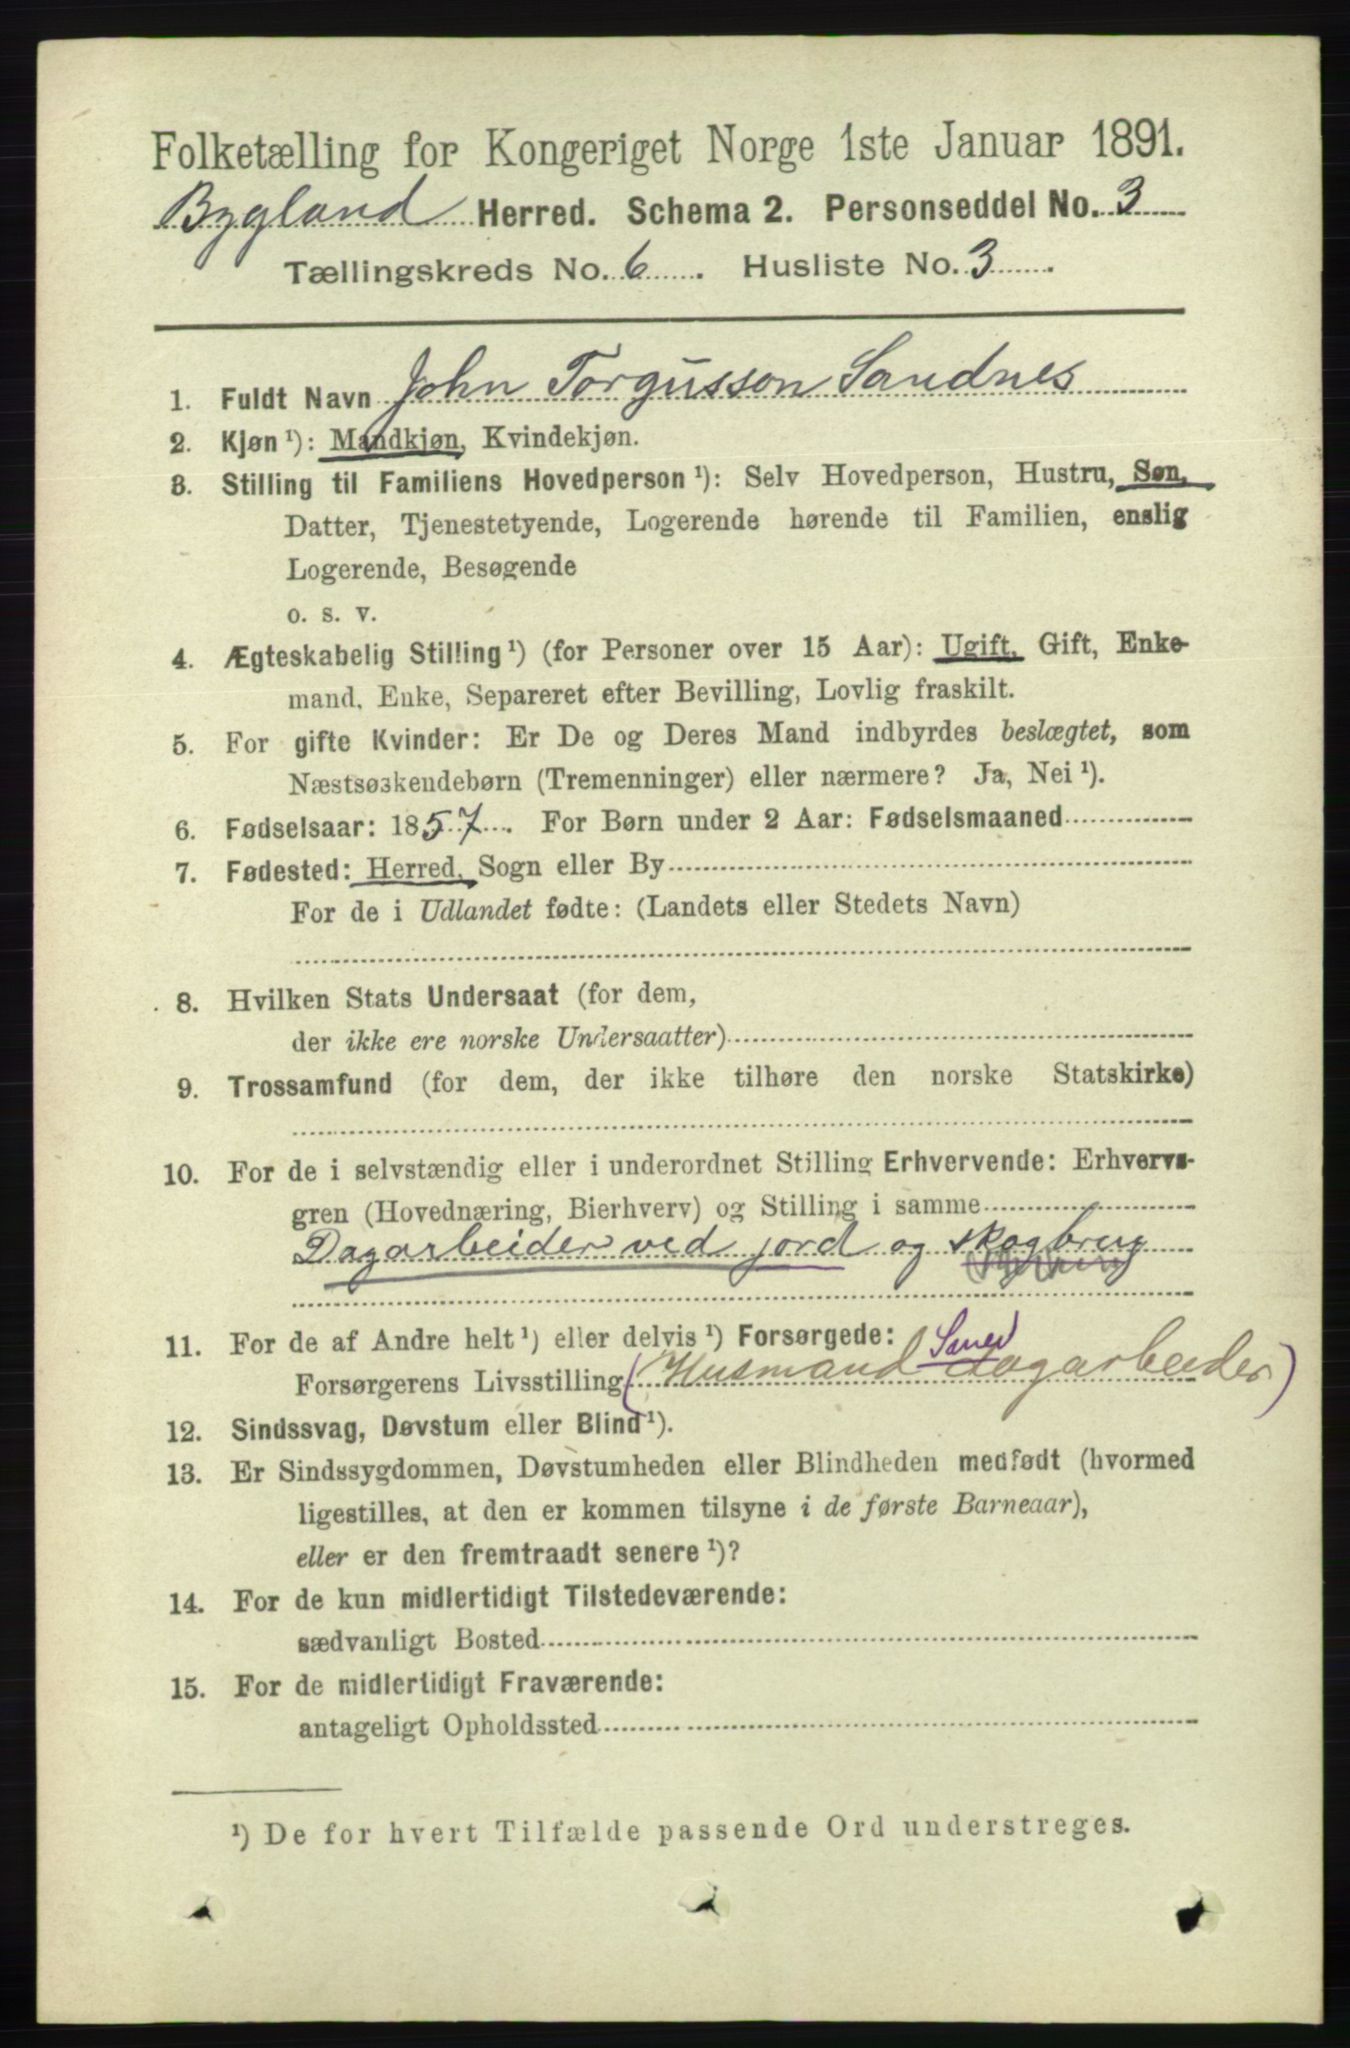 Folketælling for Kongeriget Norge 1ste Januar 1891.
Bygland Herred. Schema 2. Personseddel No. 3
Tællingskreds No. 6. Husliste No. 3.
1. Fuldt Navn John Torgusson Sandnes
2. Kjøn ¹): Mandkjøn, Kvindekjøn.
3. Stilling til Familiens Hovedperson ¹): Selv Hovedperson, Hustru, Søn,
Datter, Tjenestetyende, Logerende hørende til Familien, enslig
Logerende, Besøgende
o. s. v.
4. Ægteskabelig Stilling ¹) (for Personer over 15 Aar): Ugift, Gift, Enke-
mand, Enke, Separeret efter Bevilling, Lovlig fraskilt.
5. For gifte Kvinder: Er De og Deres Mand indbyrdes beslægtet, som
Næstsøskendebørn (Tremenninger) eller nærmere? Ja, Nei ¹).
6. Fødselsaar: 1857. For Børn under 2 Aar: Fødselsmaaned
7. Fødested: Herred, Sogn eller By
For de i Udlandet fødte: (Landets eller Stedets Navn)
8. Hvilken Stats Undersaat (for dem,
der ikke ere norske Undersaatter)
9. Trossamfund (for dem, der ikke tilhøre den norske Statskirke)
10. For de i selvstændig eller i underordnet Stilling Erhvervende: Erhvervs-
gren (Hovednæring, Bierhverv) og Stilling i samme
Dagarbeider ved jord og skogbrug
11. For de af Andre helt ¹) eller delvis ¹) Forsørgede:
Forsørgerens Livsstilling (Husmand dagarbeider)
12. Sindssvag, Døvstum eller Blind ¹).
13. Er Sindssygdommen, Døvstumheden eller Blindheden medfødt (hvormed
ligestilles, at den er kommen tilsyne i de første Barneaar),
eller er den fremtraadt senere ¹)?
14. For de kun midlertidigt Tilstedeværende:
sædvanligt Bosted
15. For de midlertidigt Fraværende:
antageligt Opholdssted
¹) De for hvert Tilfælde passende Ord understreges.